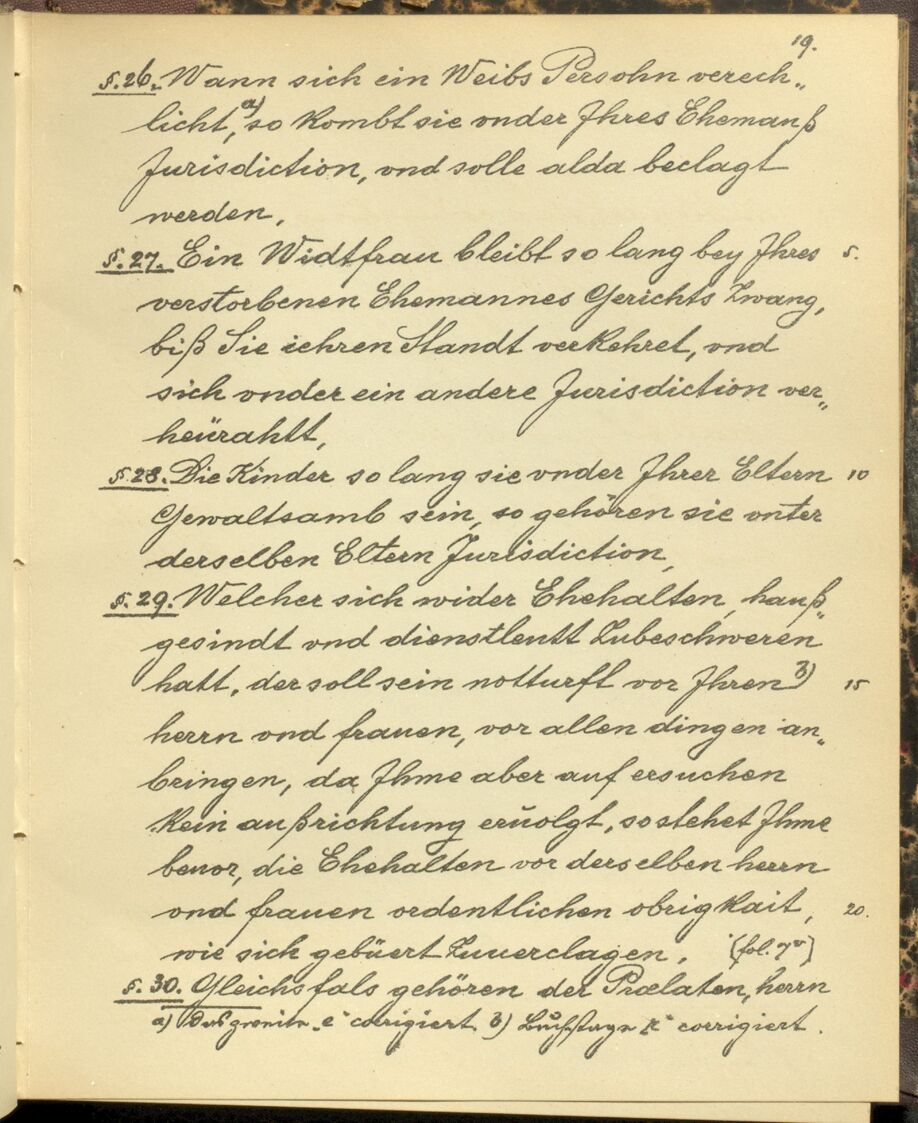 19.
§. 26. Wann sich ein Weibs Persohn verech„
licht,a) so kombt sie vnder Jhres Ehemanß
Jurisdiction, vnd solle alda beclagt
werden,
§. 27. Ein Widtfrau bleibt so lang bey Jhres 5.
verstorbenen Ehemannes Gerichts Zwang,
biß Sie iehren Standt verkehret, vnd
sich vnder ein andere Jurisdiction ver„
heürahtt,
§. 28. Die Kinder so lang sie vnder Jhrer Eltern 10
Gewaltsamb sein, so gehören sie vnter
derselben Eltern Jurisdiction,
§. 29. Welcher sich wider Ehehalten, hauß„
gesindt vnd dienstleutt Zubeschweren
hatt, der soll sein notturfft vor Jhren b) 15
herrn vnd frauen, vor allen dingen an„
bringen, da Jhme aber auf ersuchen
kein außrichtung eruolgt, so stehet Jhme
beuor, die Ehehalten vor derselben herrn
vnd frauen ordentlichen obrigkait, 20.
wie sich gebüert Zuuerclagen. (fol. 7v)
§. 30. Gleichsfals gehören der Prælaten, herrn
a) Das zweite „e“ corrigiert b) Buchstabe „r“ corrigiert.